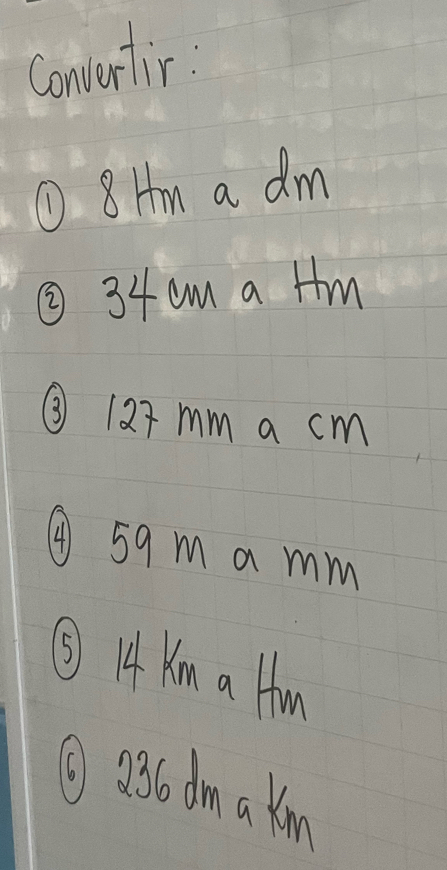 Convertir:
① 8 Hm a dm
② 34 cm a Hm
③ 127 mm a cm
④ 59 m a mm
⑤ 14 Km a Hm
⑥ 236 dm a Km